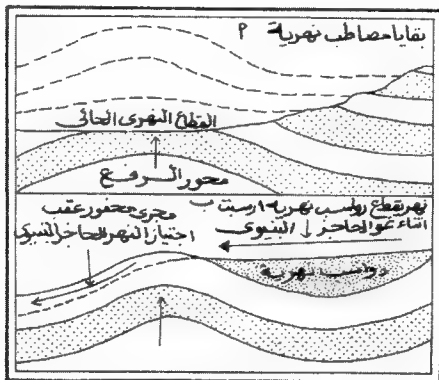 بقايا مصاطب نهرية
أ
القطاع النهرى الحالى
محور الرفع
نهر يقطع رواسب نهرية ارسبت ب
اثناء نمو الحاجز البنيوى
مجرى محفور عقب
اجتياز النهر للحاجز البنيوى
رواسب نهرية